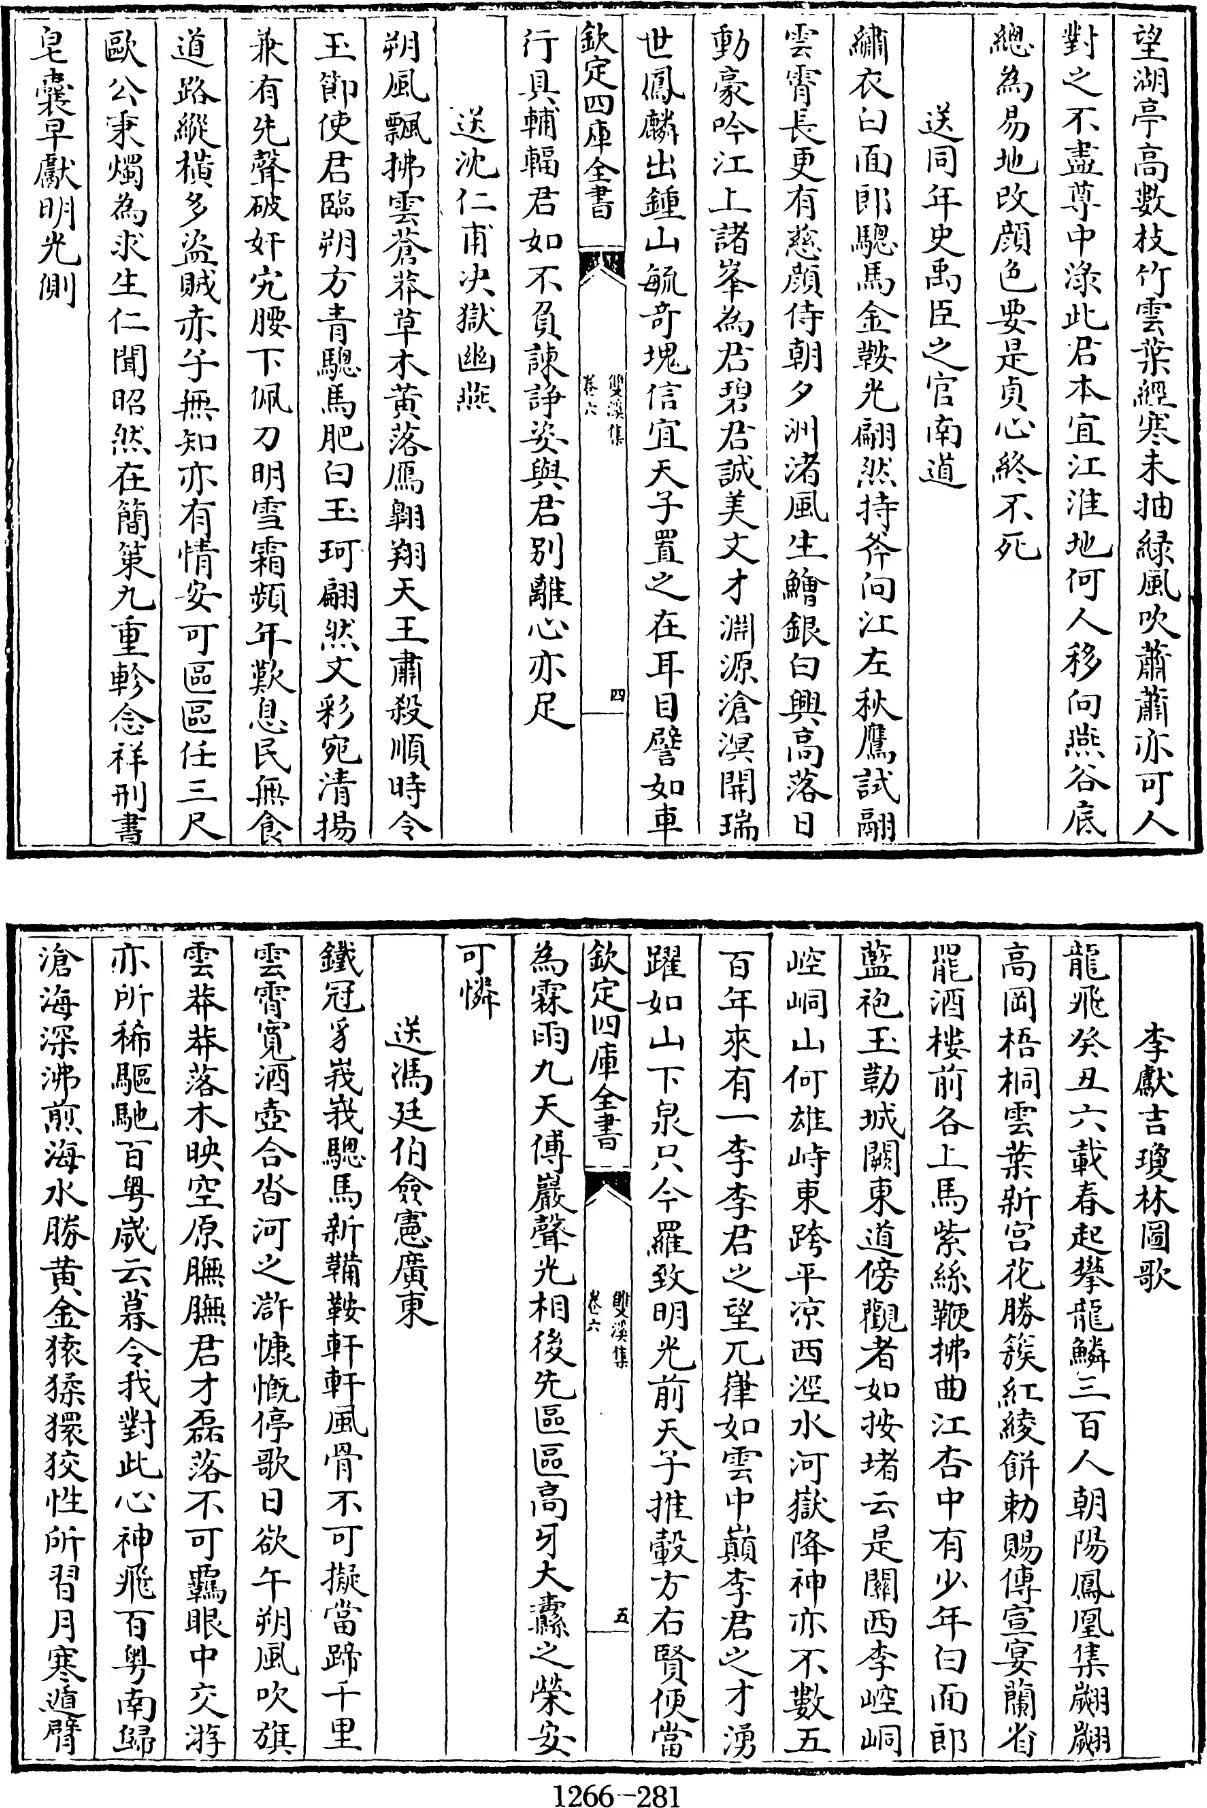 望湖亭高數枝竹雲葉經寒未抽緑風吹蕭蕭亦可人
對之不盡尊中淥此君本宜江淮地何人移向燕谷底
總為易地改顔色要是貞心終不死
送同年史禹臣之官南道
繡衣白面郎驄馬金鞍光翩然持斧向江左秋鷹試翮
雲霄長更有慈顔侍朝夕洲渚風生鱠銀白興高落日
動豪吟江上諸峯為君碧君誠美文才淵源滄溟開瑞
世鳳麟出鍾山毓竒塊信宜天子置之在耳目譬如車
欽定四庫全書
雙溪集
卷六
四
行具輔輻君如不負諫諍姿與君别離心亦足
送沈仁甫决獄幽燕
朔風飄拂雲蒼莽草木黄落鴈翺翔天王肅殺順時令
玉節使君臨朔方青驄馬肥白玉珂翩然文彩宛清揚
兼有先聲破奸宄腰下佩刀明雪霜頻年歎息民無食
道路縱横多盜賊赤子無知亦有情安可區區任三尺
歐公秉燭為求生仁聞昭然在簡策九重軫念祥刑書
皂囊早獻明光側
李獻吉瓊林圖歌
龍飛癸丑六載春起攀龍鱗三百人朝陽鳳凰集翽翽
高岡梧桐雲葉新宫花勝簇紅綾餅勅賜傳宣宴蘭省
罷酒樓前各上馬紫絲鞭拂曲江杏中有少年白面郎
藍袍玉勒城闕東道傍觀者如按堵云是關西李崆峒
崆峒山何雄峙東跨平凉西涇水河嶽降神亦不數五
百年來有一李李君之望兀嵂如雲中巔李君之才湧
躍如山下泉只今羅致明光前天子推轂方右賢便當
欽定四庫全書
雙溪集
卷六
五
為霖雨九天傅巖聲光相後先區區高牙大纛之榮安
可憐
送馮廷伯僉憲廣東
鐵冠豸峩峩驄馬新鞴鞍軒軒風骨不可擬當蹄千里
雲霄寛酒壺合沓河之滸慷慨停歌日欲午朔風吹旗
雲莽莽落木映空原膴膴君才磊落不可羈眼中交游
亦所稀驅馳百粤歲云暮令我對此心神飛百粤南歸
滄海深沸煎海水勝黄金猿猱獧狡性所習月寒遁臂
1266-281